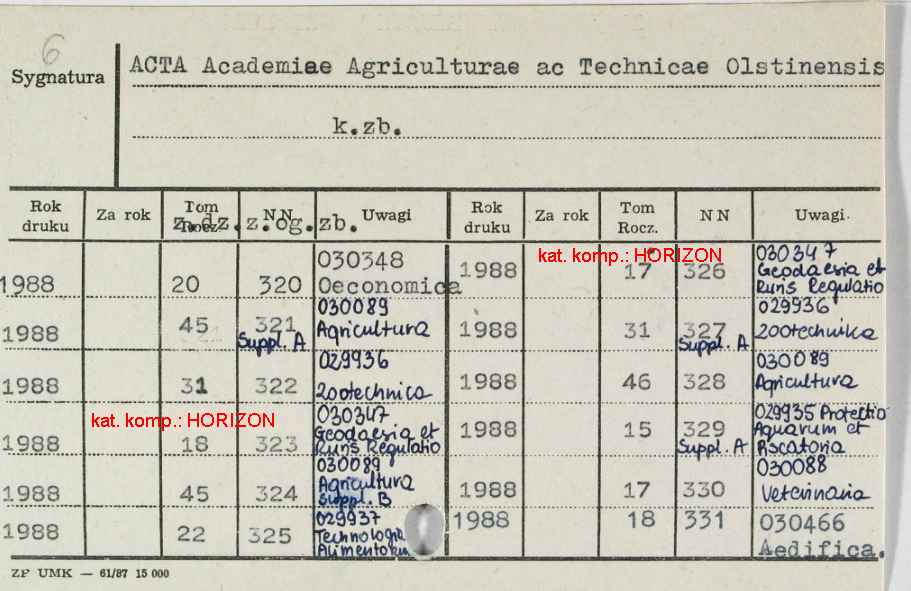 6
Sygnatura
ACTA Academiae Agriculturae ac Technicae Olstinensis
k.zb.
Rok druku Za rok Tom Rocz. NN Uwagi Rok druku Za rok Tom Rocz. NN Uwagi.
z.dz. z.og. zb.
kat. komp.: HORIZON
1988 20 320 030348 Oeconomica
1988 45 321 Suppl. A 030089 Agricultura
1988 31 322 029936 Zootechnica
kat. komp.: HORIZON
1988 18 323 030347 Geodaesia et Ruris Regulatio
1988 45 324 030089 Agricultura Suppl. B
1988 22 325 029937 Technologia Alimentorum
1988 17 326 030347 Geodaesia et Ruris Regulatio
1988 31 327 Suppl. A 029936 Zootechnika
1988 46 328 030089 Agricultura
1988 15 329 Suppl. A 029935 Protectio Aquarum et Piscatoria
1988 17 330 030088 Veterinaria
1988 18 331 030466 Aedifica.
ZP UMK — 61/87 15 000